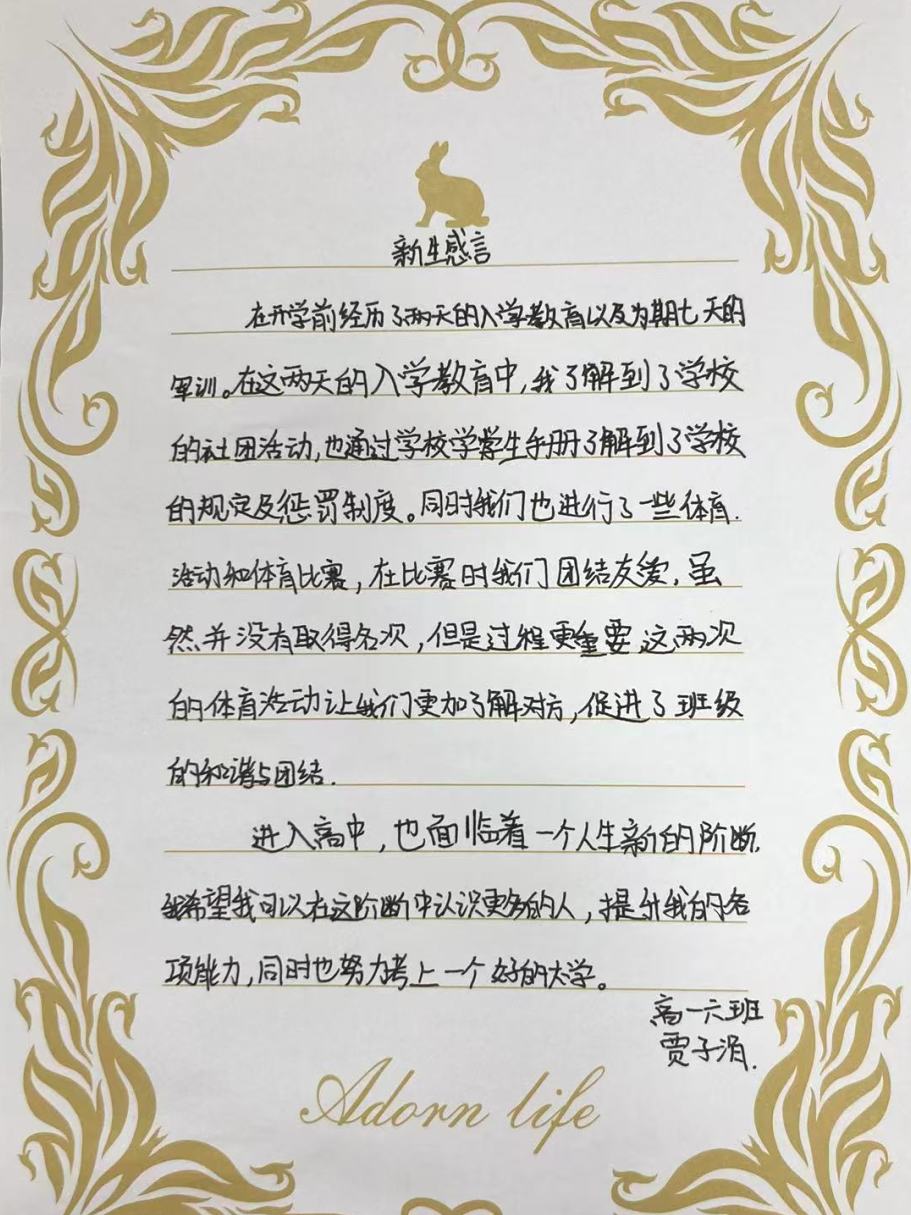 新生感言
在开学前经历了两天的入学教育以及为期七天的
军训。在这两天的入学教育中,我了解到了学校
的社团活动,也通过学校学生手册了解到了学校
的规定及惩罚制度。同时我们也进行了一些体育.
活动和体育比赛,在比赛时我们团结友爱,虽
然并没有取得名次,但是过程更重要.这两次
的体育活动让我们更加了解对方,促进了班级
的和谐与团结.
进入高中,也面临着一个人生新的阶断.
我希望我可以在这阶断中认识更多的人,提升我的各
项能力,同时也努力考上一个好的大学。
高一六班
贾子涓.
Adorn life